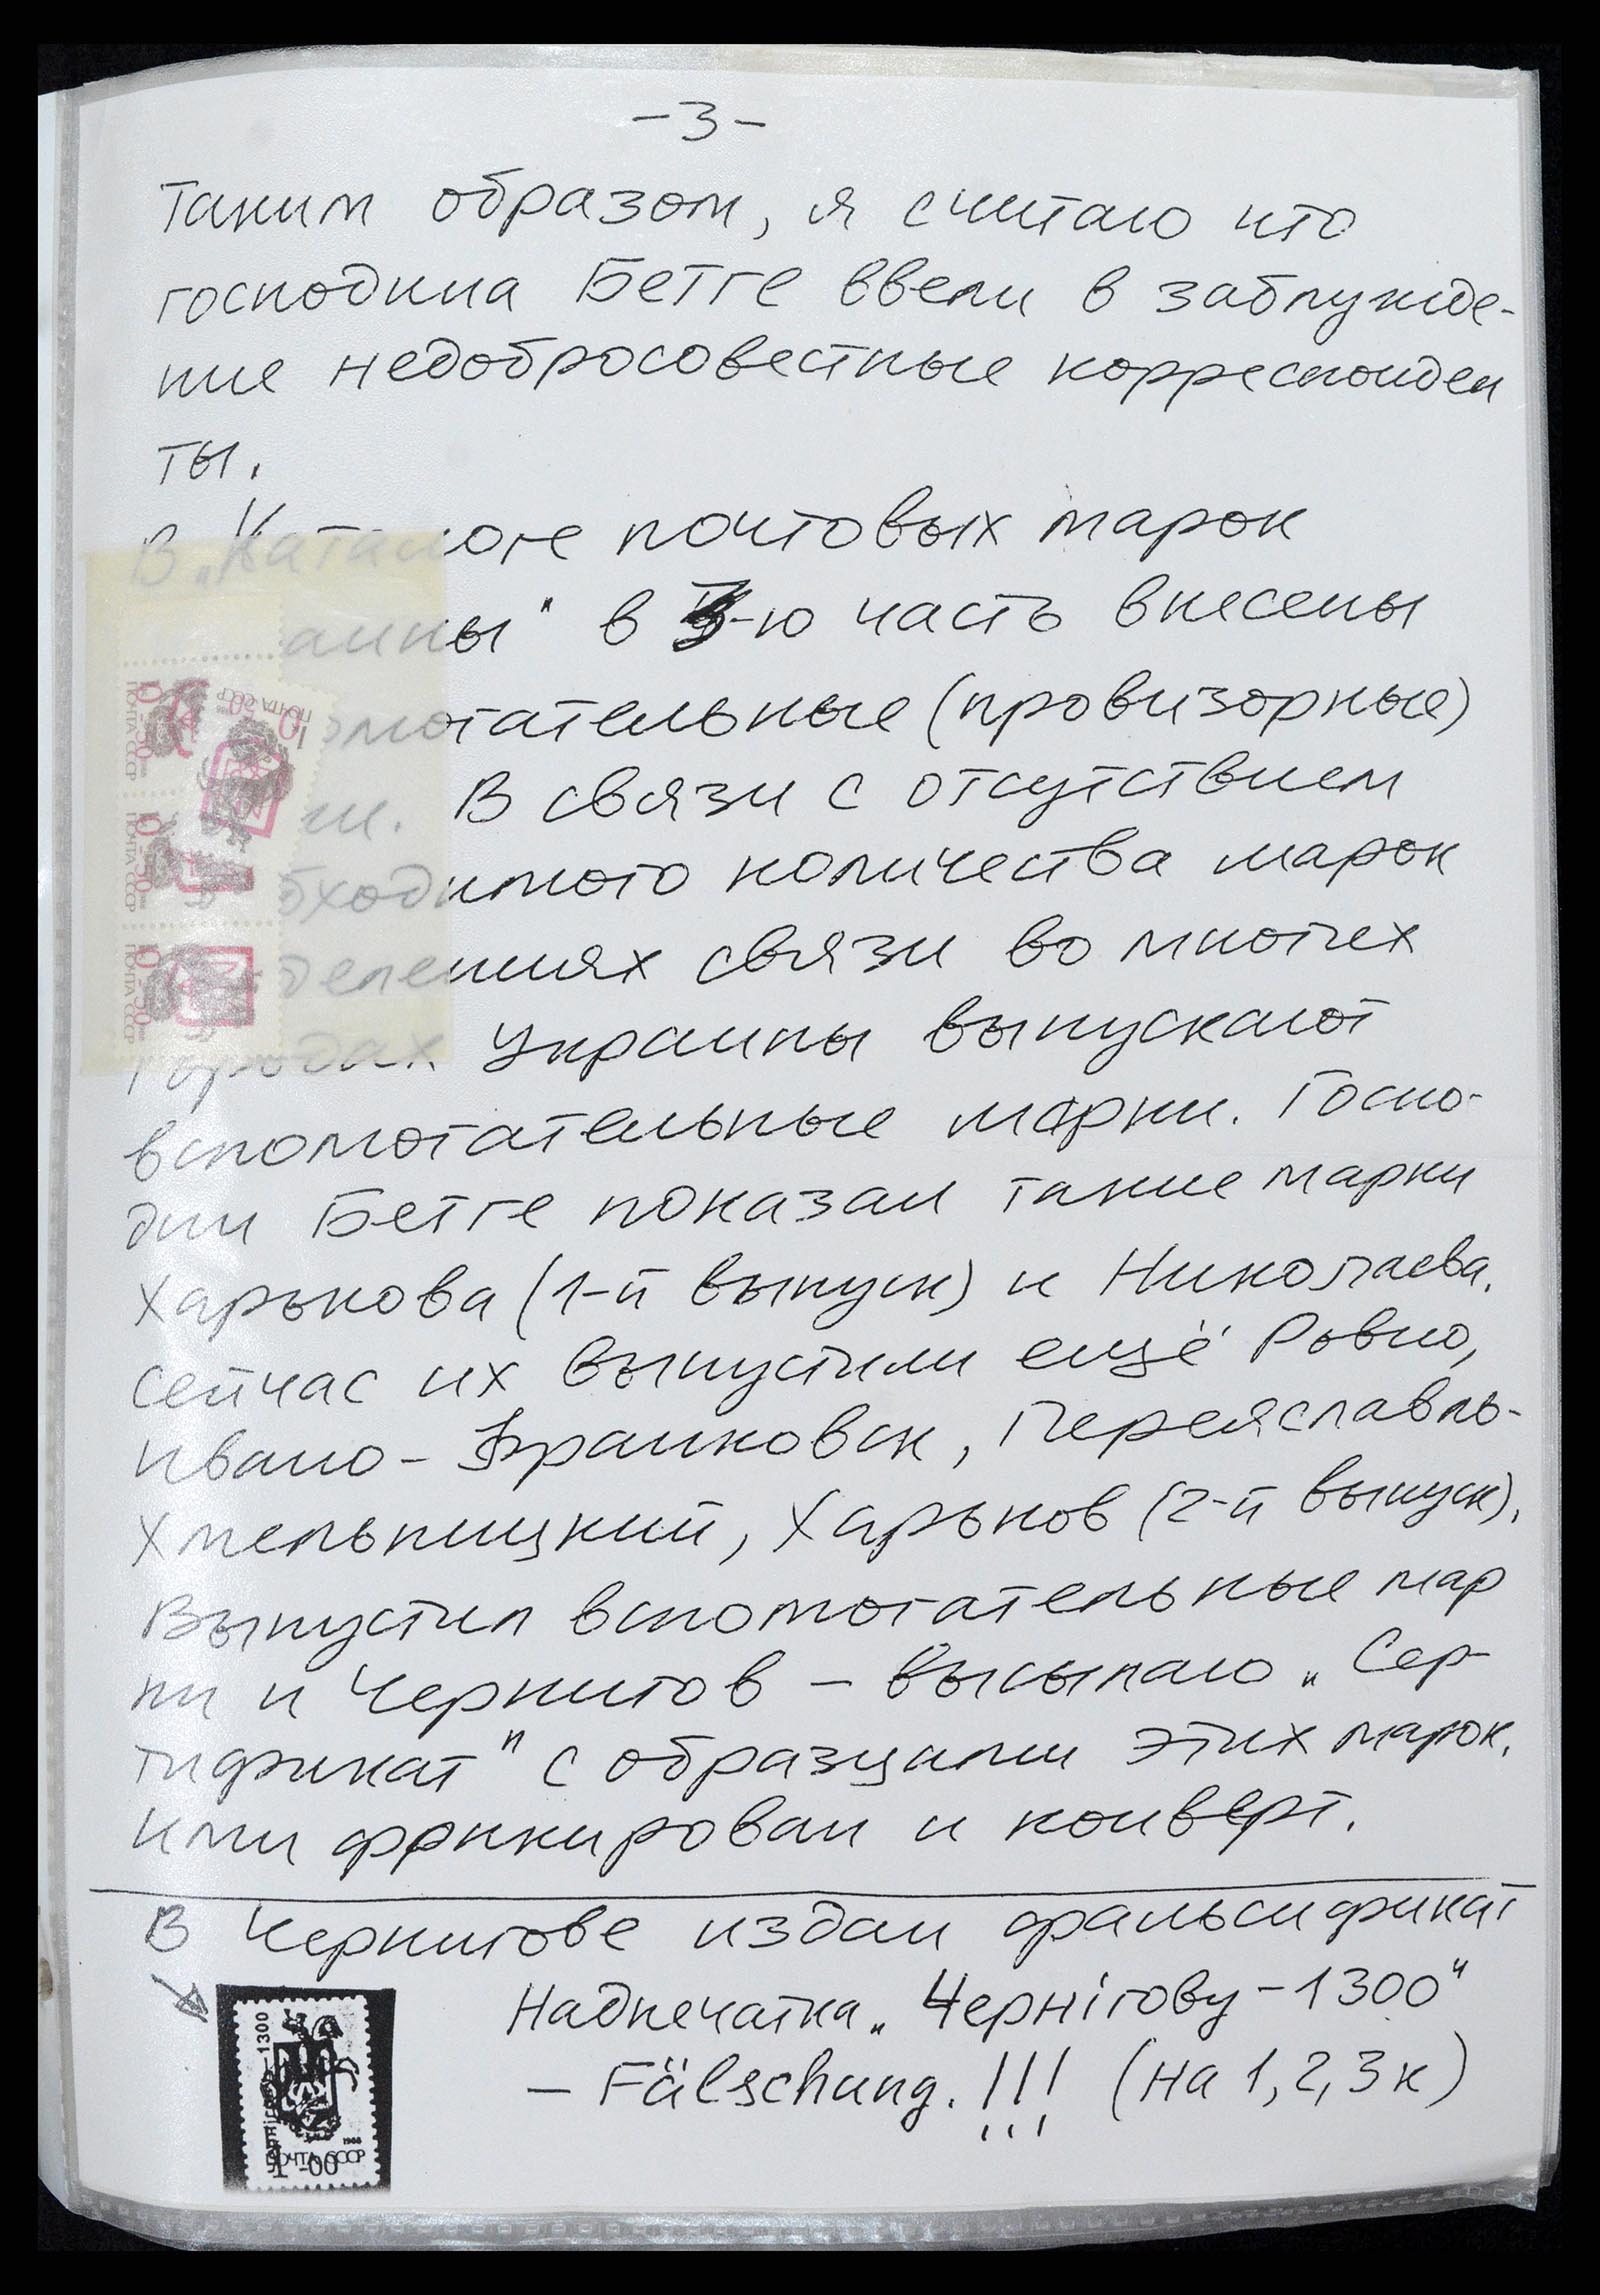 -3-
Таким образом, я считаю что
господина Бетге ввели в заблужде-
ние недобросовестные корреспонден
ты.
В „Каталоге почтовых марок
аины" в -ю часть внесены
омогательные (провизорные)
ки. В связи с отсутствием
бходимого количества марок
делениях связи во многих
городах Украины выпускают
вспомогательные марки. Госпо-
дин Бетге показал такие марки
Харькова (1-й выпуск) и Николаева.
Сейчас их выпустили ещё Ровно,
Ивано-Франковск, Переяславль-
Хмельницкий, Харьков (2-й выпуск).
Выпустил вспомогательные мар
ки и Чернигов – высылаю „Сер-
тификат" с образцами этих марок.
Ими франкирован и конверт.
В Чернигове издан фальсификат
Надпечатка „Чернігову-1300"
– Fälschung.!!! (на 1,2,3к)
Чернігову–1300
1988
ПОЧТА СССР
1-00
ПОЧТА СССР
0-50
ПОЧТА СССР
0-50
ПОЧТА СССР
0-50
ПОЧТА СССР
0-50